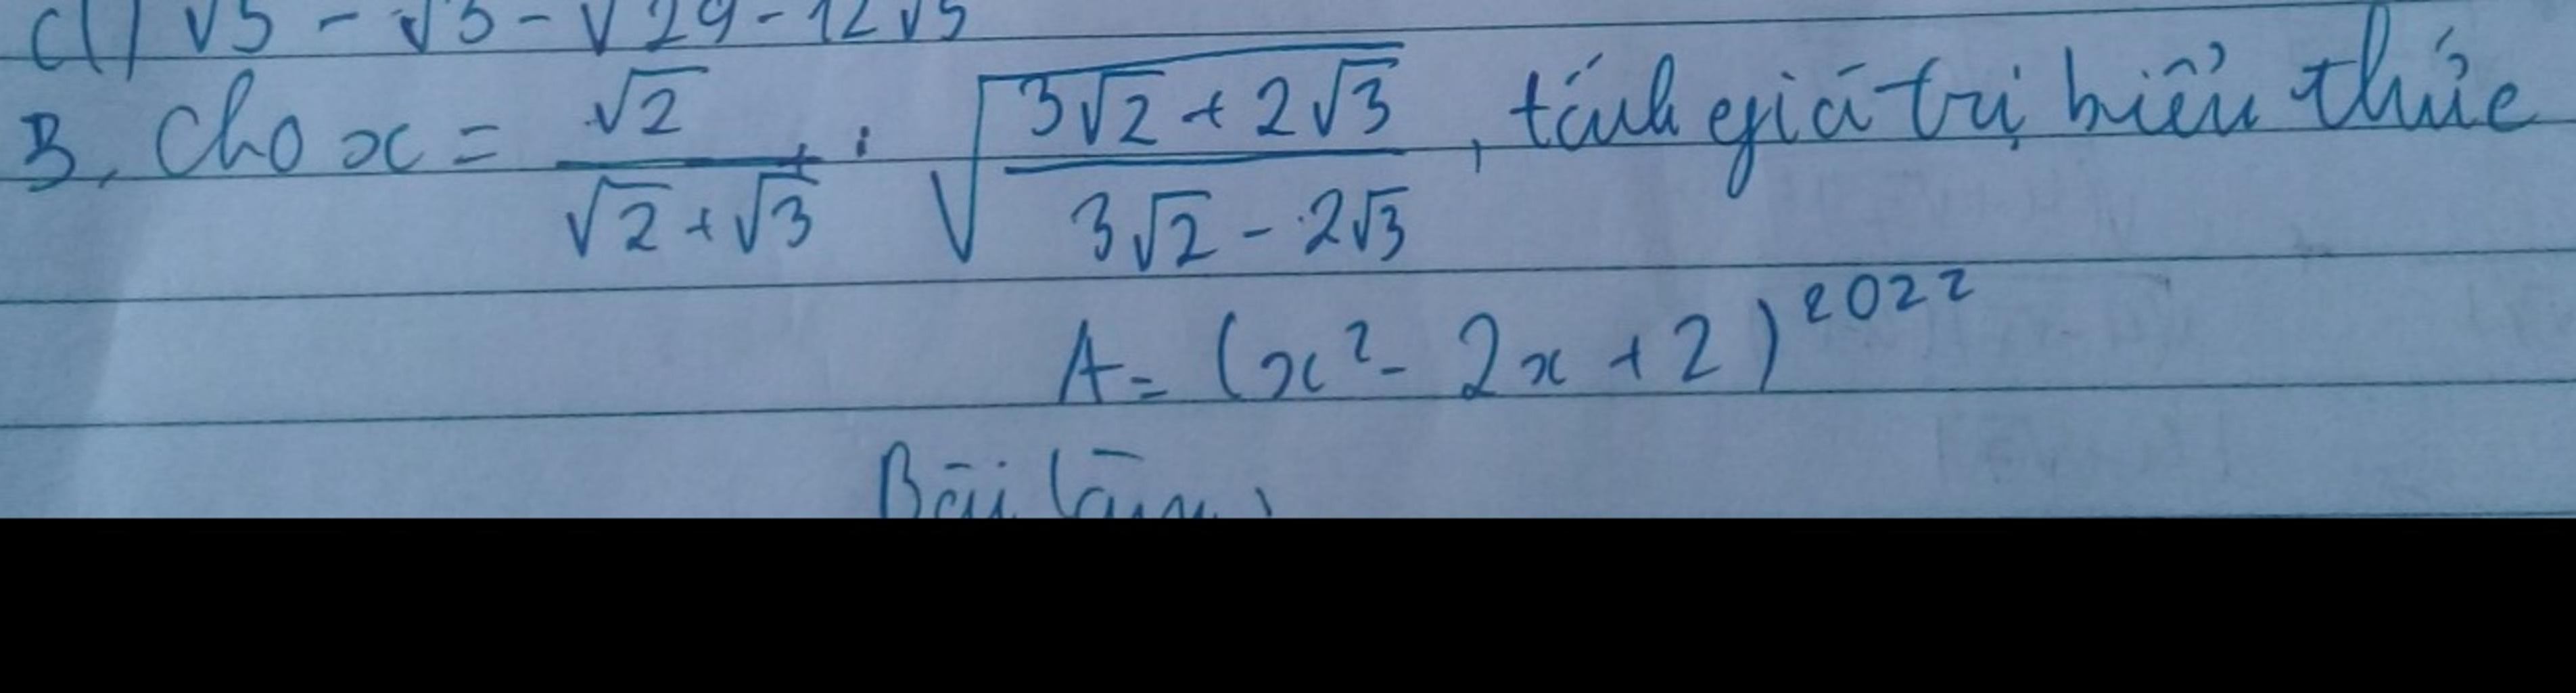 d) √5 - √3 - √29 - 12√5
3, Cho x = √2 / (√2 + √3) : √((3√2 + 2√3) / (3√2 - 2√3)), tính giá trị biểu thức
A = (x² - 2x + 2)²⁰²²
Bài làm: